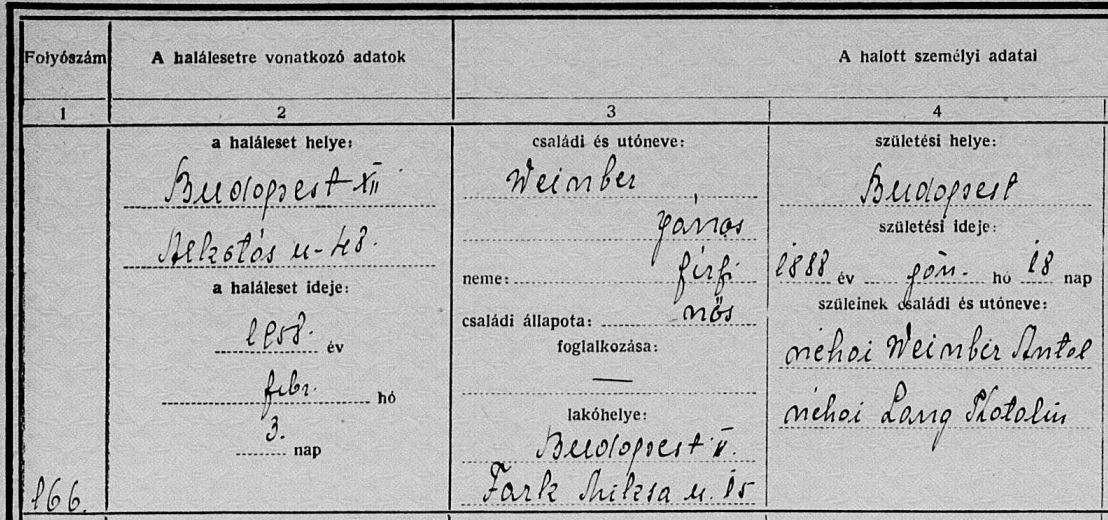 Folyószám
A halálesetre vonatkozó adatok
A halott személyi adatai
1
2
3
4
a haláleset helye:
Budapest XII
Alkotás u-48.
a haláleset ideje:
1958. év
febr. hó
3. nap
családi és utóneve:
Weimber
János
neme: férfi
családi állapota: nős
foglalkozása:
—
lakóhelye:
Budapest V.
Falk Miksa u. 15
születési helye:
Budapest
születési ideje:
1888 év jan. hó 18 nap
szüleinek családi és utóneve:
néhai Weimber Antal
néhai Lang Katalin
166.